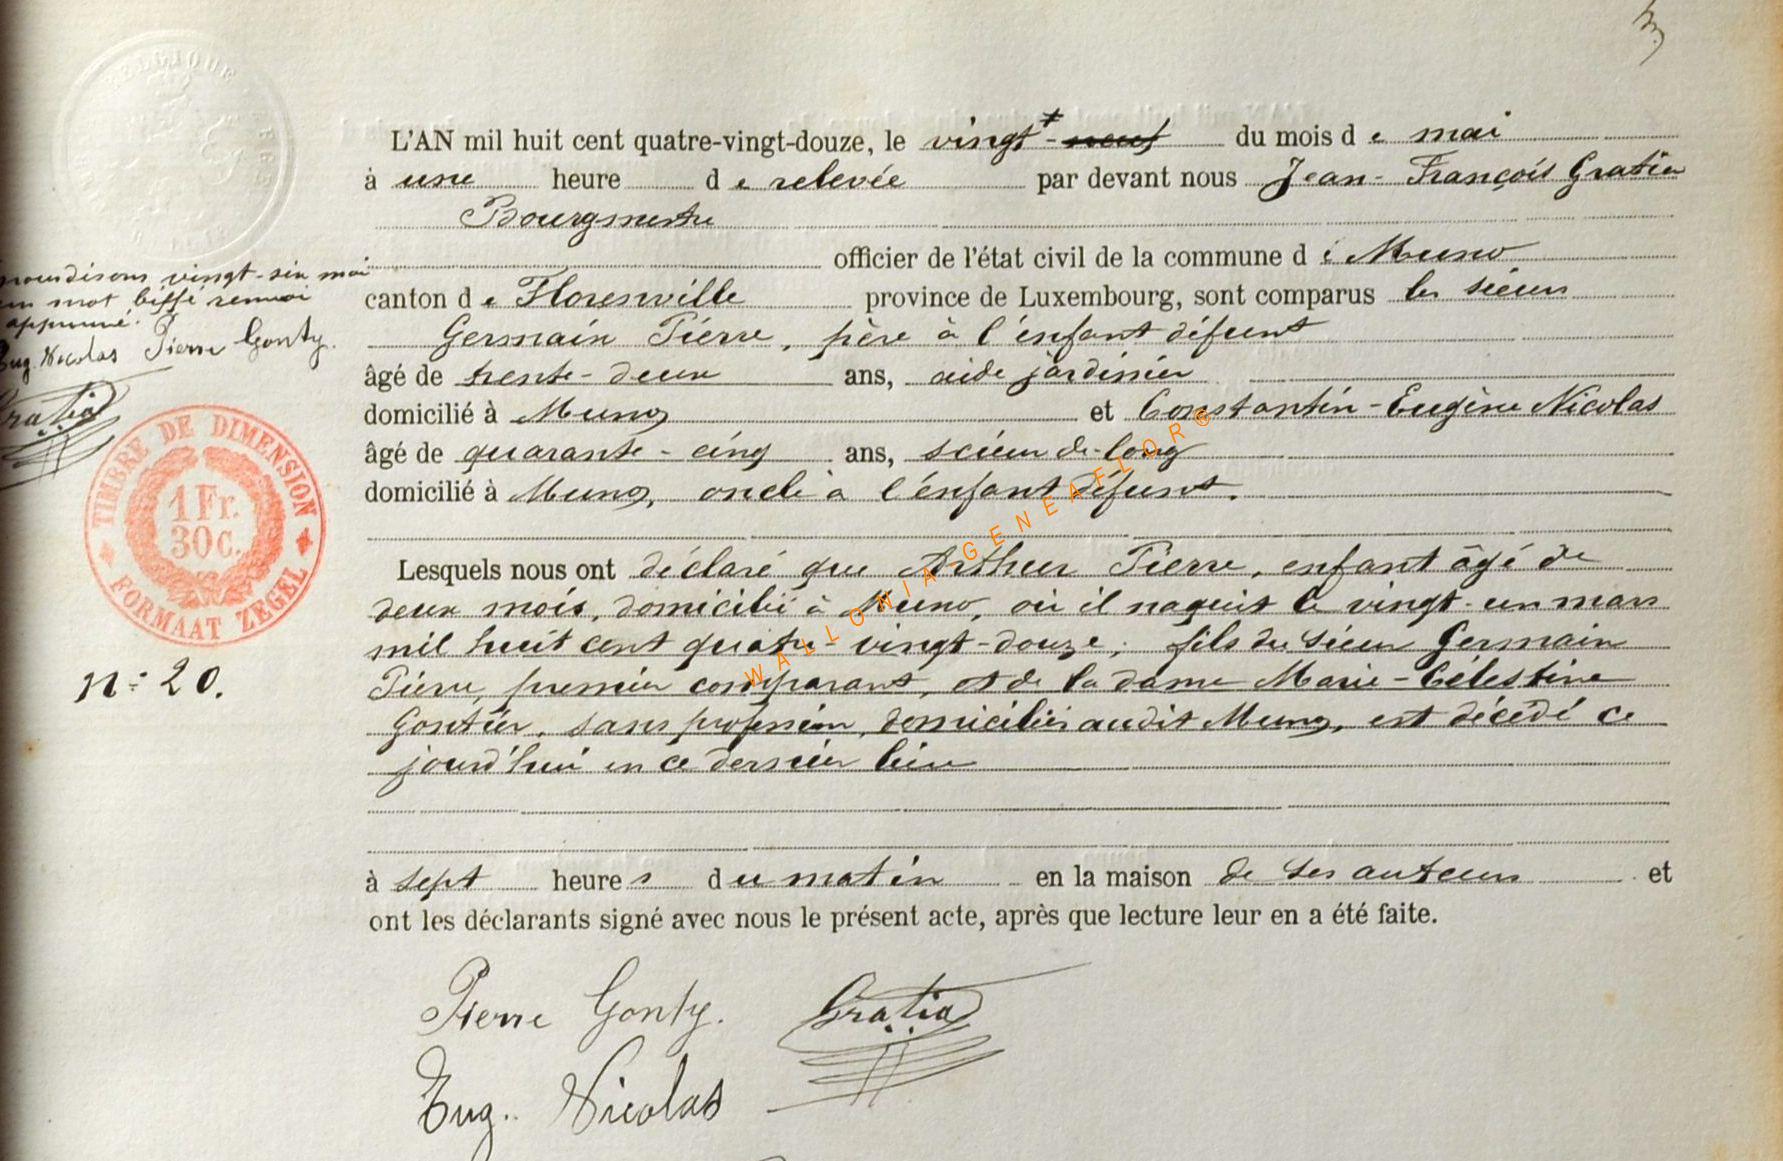 BELGIQUE
3
L'AN mil huit cent quatre-vingt-douze, le vingt-neuf du mois de mai
à une heure de relevée par devant nous Jean-François Gratia
Bourgmestre
officier de l'état civil de la commune de Muno
canton de Florenville province de Luxembourg, sont comparus les sieurs
Germain Pierre, père à l'enfant défunt
âgé de trente-deux ans, aide jardinier
domicilié à Muno, et Constantin-Eugène Nicolas
âgé de quarante-cinq ans, scieur de long
domicilié à Muno, oncle à l'enfant défunt.
Lesquels nous ont déclaré que Arthur Pierre, enfant âgé de
deux mois, domicilié à Muno, où il naquit le vingt-un mars
mil huit cent quatre-vingt-douze, fils du sieur Germain
Pierre, premier comparant, et de la dame Marie-Célestine
Gontier, sans profession, domiciliés audit Muno, est décédé ce
jourd'hui en ce dernier lieu
à sept heures du matin en la maison de ses auteurs et
ont les déclarants signé avec nous le présent acte, après que lecture leur en a été faite.
Pierre Gonty. Gratia
Eug. Nicolas
vingt-six mai
un mot biffé renvoi
approuvé.
Eug. Nicolas Pierre Gonty.
Gratia
TIMBRE DE DIMENSION
1 Fr.
30 C.
FORMAAT ZEGEL
n° 20.
WALLONIA GENEAFLOR®